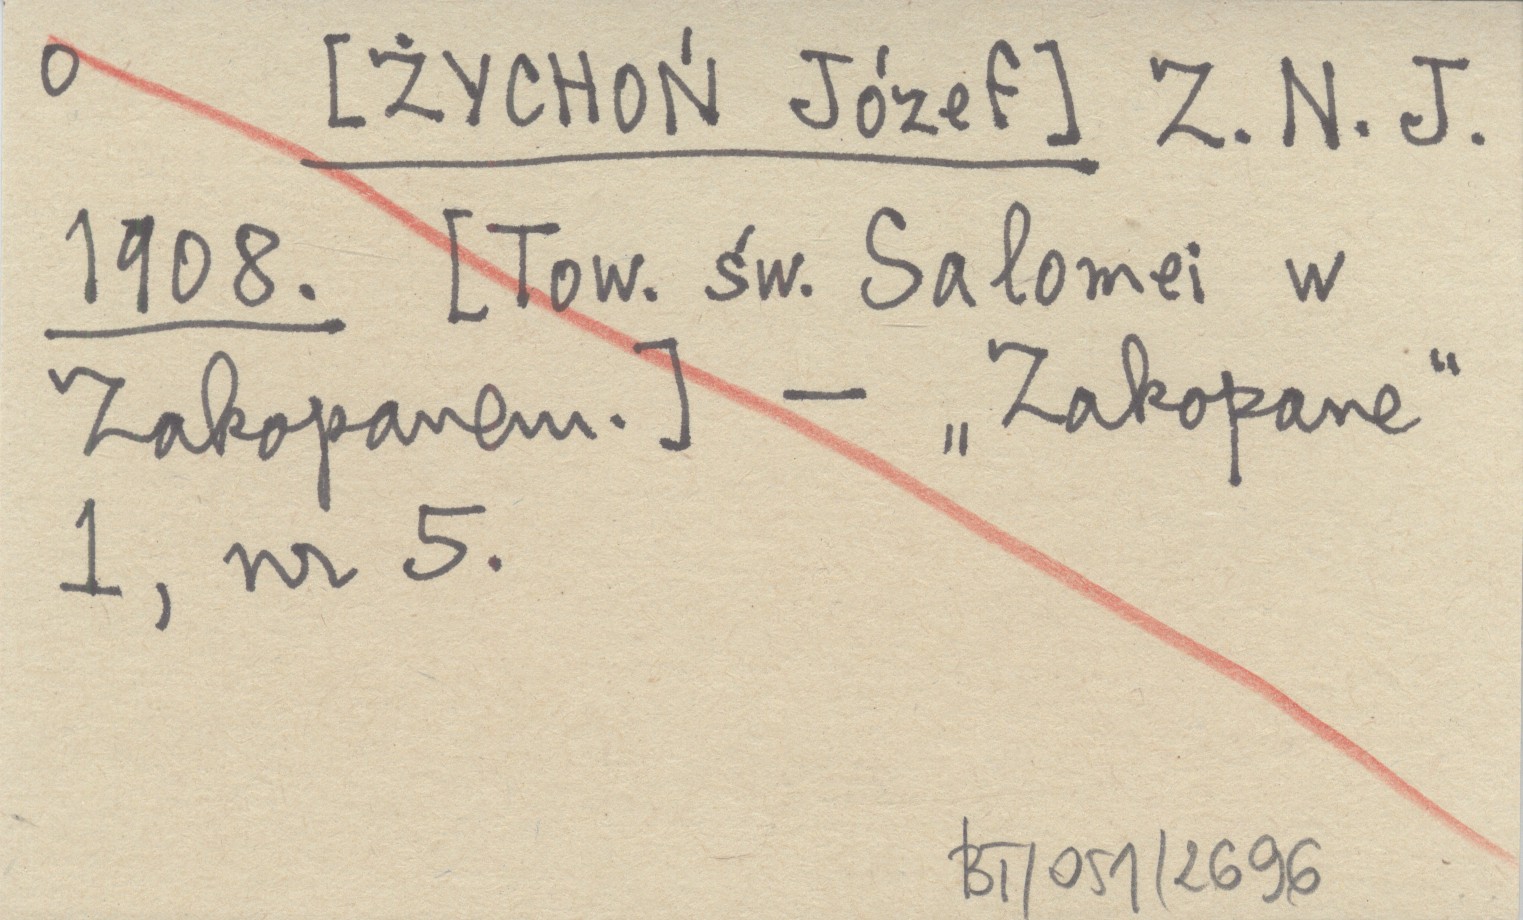 o [ŻYCHOŃ Józef] Z. N. J.
1908. [Tow. św. Salomei w
Zakopanem.] — „Zakopane“
1, nr 5.
BT/051/2696